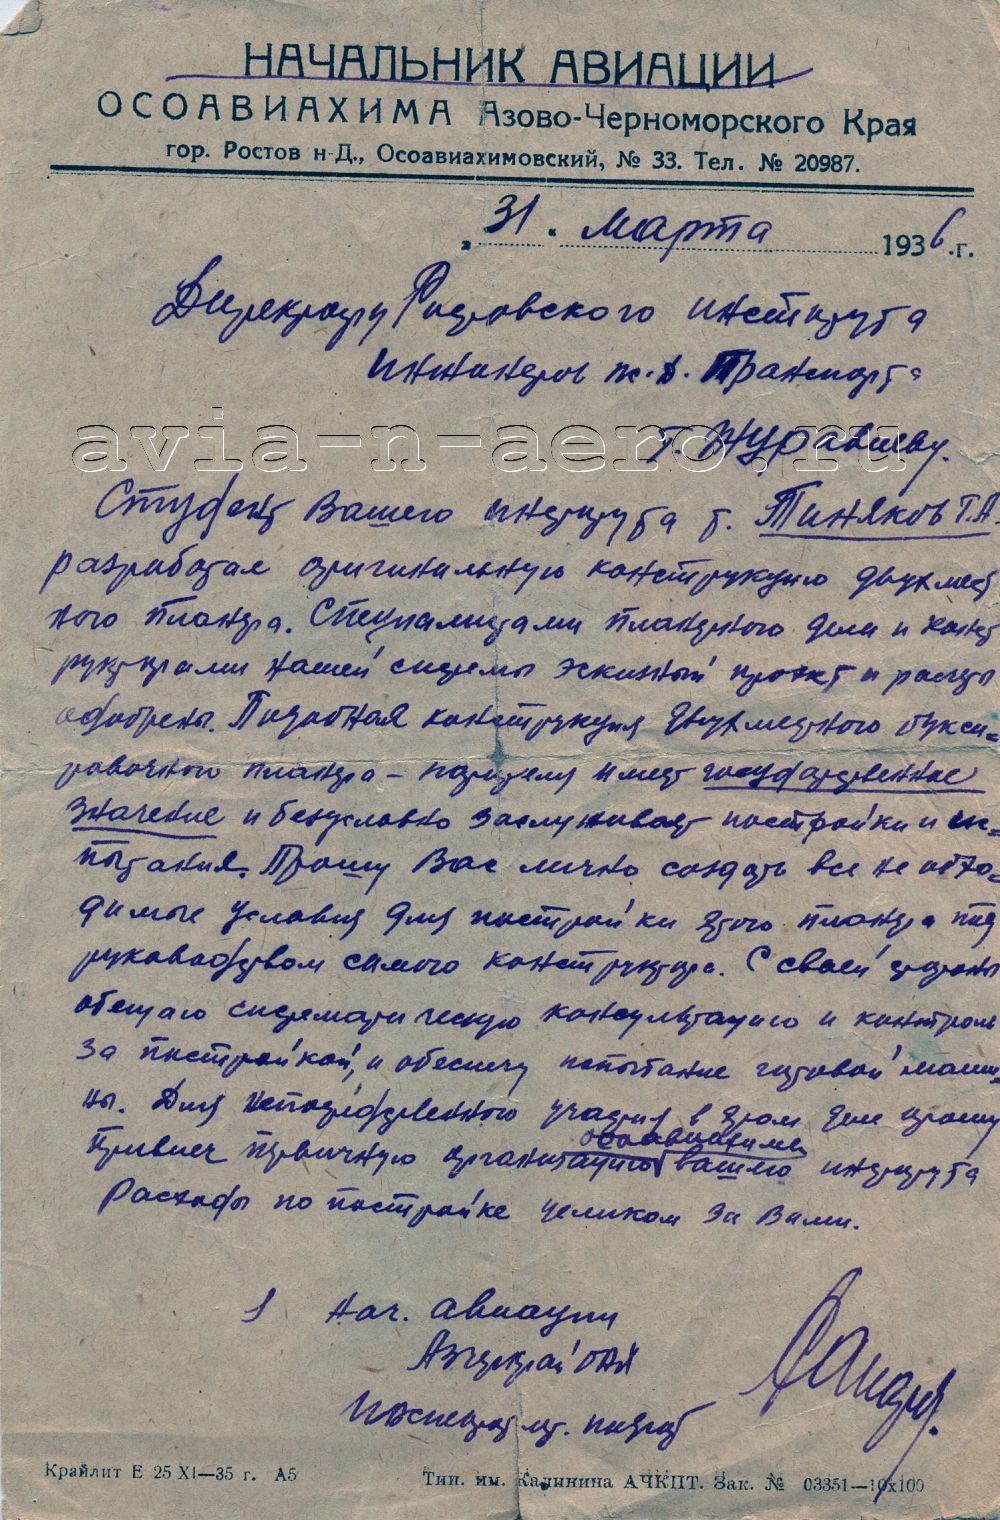 НАЧАЛЬНИК АВИАЦИИ
ОСОАВИАХИМА Азово-Черноморского Края
гор. Ростов н-Д., Осоавиахимовский, № 33. Тел. № 20987.
„ 31 " марта 1936 .г.
Директору Ростовского института
инженеров ж.д. Транспорта
avia-n-aero.ru
т. Журавлеву.
Студент Вашего института т. Тиняков Г.А.
разработал оригинальную конструкцию двухмест
ного планера. Специалистами планерного дела и конст
рукторами нашей системы эскизный проект и расчеты
одобрены. Подобная конструкция двухместного букси-
ровочного планера – парителя имеет государственное
значение и безусловно заслуживает постройки и ис-
пытания. Прошу Вас лично создать все не обхо-
димые условия для постройки этого планера под
руководством самого конструктора. С своей стороны
обещаю систематическую консультацию и контроль
за постройкой, и обеспечу испытание готовой маши-
ны. Для непосредственного участия в этом деле прошу
осоавиахима
привлеч первичную организацию вашего института
Расходы по постройке целиком за Вами.
Нач. авиации
Азчеркрай ОАХ
Крайлит Е 25 XI—35 г. А5
Тип. им. Калинина АЧКПТ. Зак. № 03351—10х100